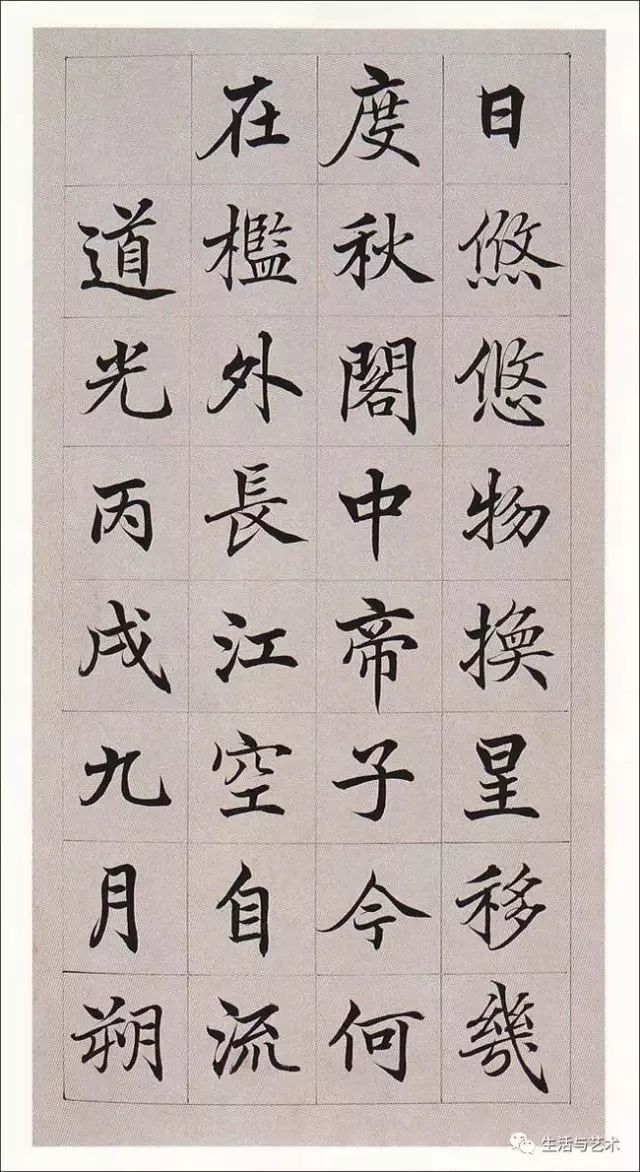 日悠悠物換星移幾
度秋閣中帝子今何
在檻外長江空自流
道光丙戌九月朔
生活与艺术